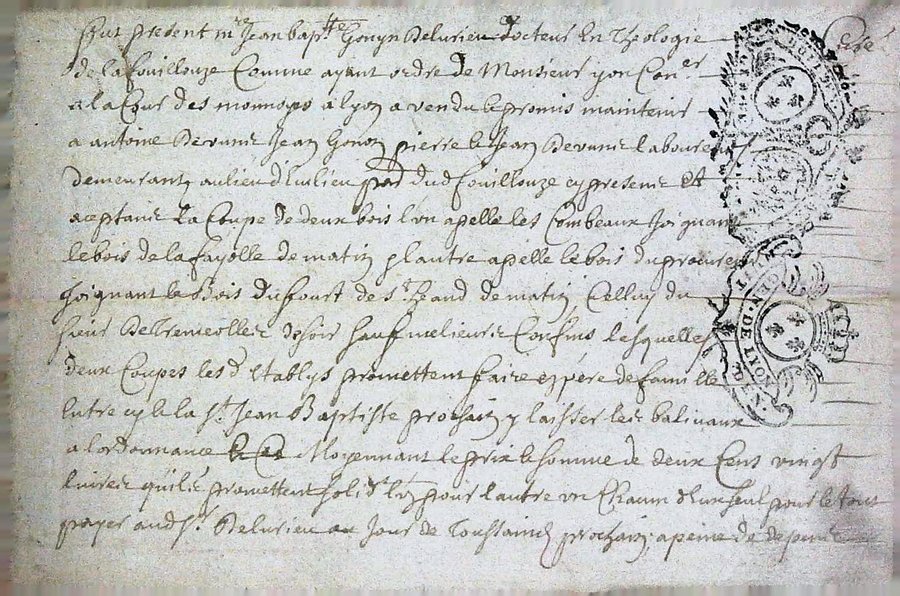 fut present mre Jean bapte Gonyn Delurieu docteur En Theologie
de la fouillouze Comme ayant ordre de Monsieur yon Coner
a la Cour des monnoyes a lyon a vendu & promis maintenir
a antoine Jean Gonon pierre & Jean laboureurs
demeurants au lieu par dud fouillouze cy presents et
aceptants La Coupe de deux bois lun apelle les Combeaux Joignant
le bois de la fayolle de matin & lautre apelle le bois du procureur
Joignant le Bois du four de St heand de matin Celluy du
sieur De Tremeolles de soir sauf melieurs Confins lesquelles
deux Coupes lesd Etablys promettent faire en pere de famille
Entre cy & la St Jean Baptiste prochain y laisser les balivaux
a lordonnance Moyennant le prix & somme de deux Cens vingt
livres quils promettent solidt lun pour lautre un Chacun deux seul pour le tout
payer aud Sr Delurieu au Jour de Toussaincts prochain; a peine de depens